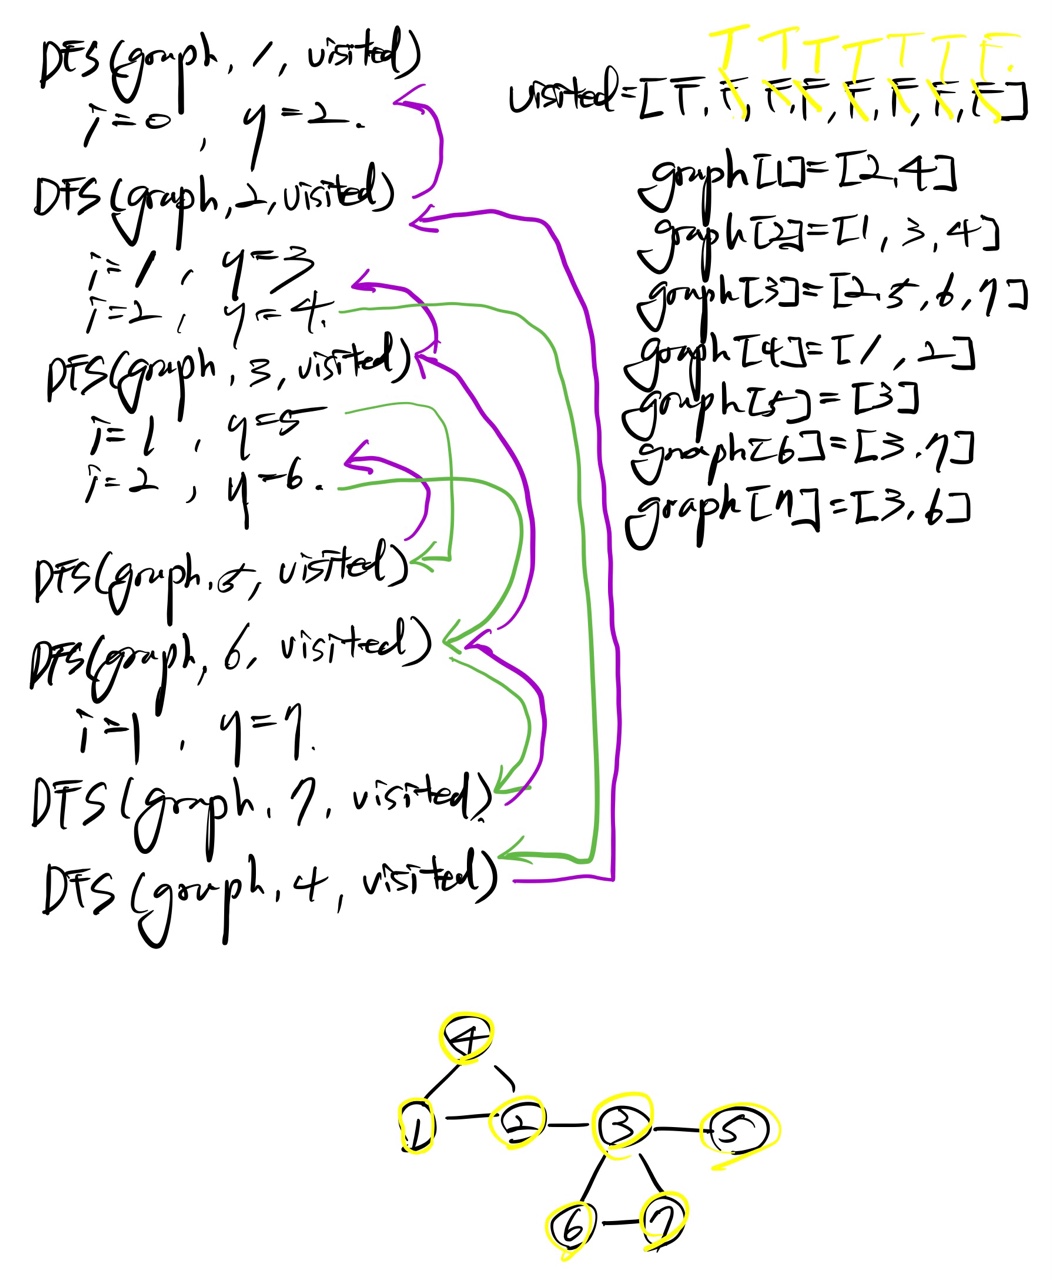 DFS(graph, 1, visited)
i=0, y=2.
DFS(graph, 2, visited)
i=1, y=3
i=2, y=4.
DFS(graph, 3, visited)
i=1, y=5
i=2, y=6.
DFS(graph, 5, visited)
DFS(graph, 6, visited)
i=1, y=7.
DFS(graph, 7, visited)
DFS(graph, 4, visited)
T T T T T T F.
visited=[F, F, F, F, F, F, F, F]
graph[1]=[2,4]
graph[2]=[1, 3, 4]
graph[3]=[2,5,6,7]
graph[4]=[1, 2]
graph[5]=[3]
graph[6]=[3,7]
graph[7]=[3,6]
4
1 2 3 5
6 7